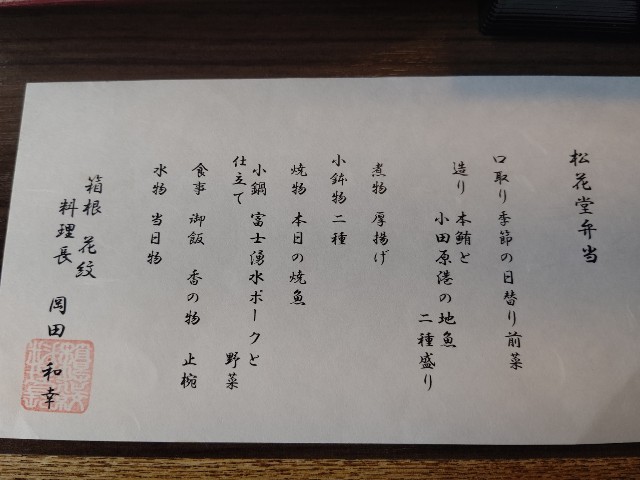 松花堂弁当
口取り 季節の日替り前菜
造り 本鮪と
小田原港の地魚
二種盛り
煮物 厚揚げ
小鉢物 二種
焼物 本日の焼魚
小鍋 富士湧水ポークと
仕立て 野菜
食事 御飯 香の物 止椀
水物 当日物
箱根 花紋
料理長 岡田 和幸